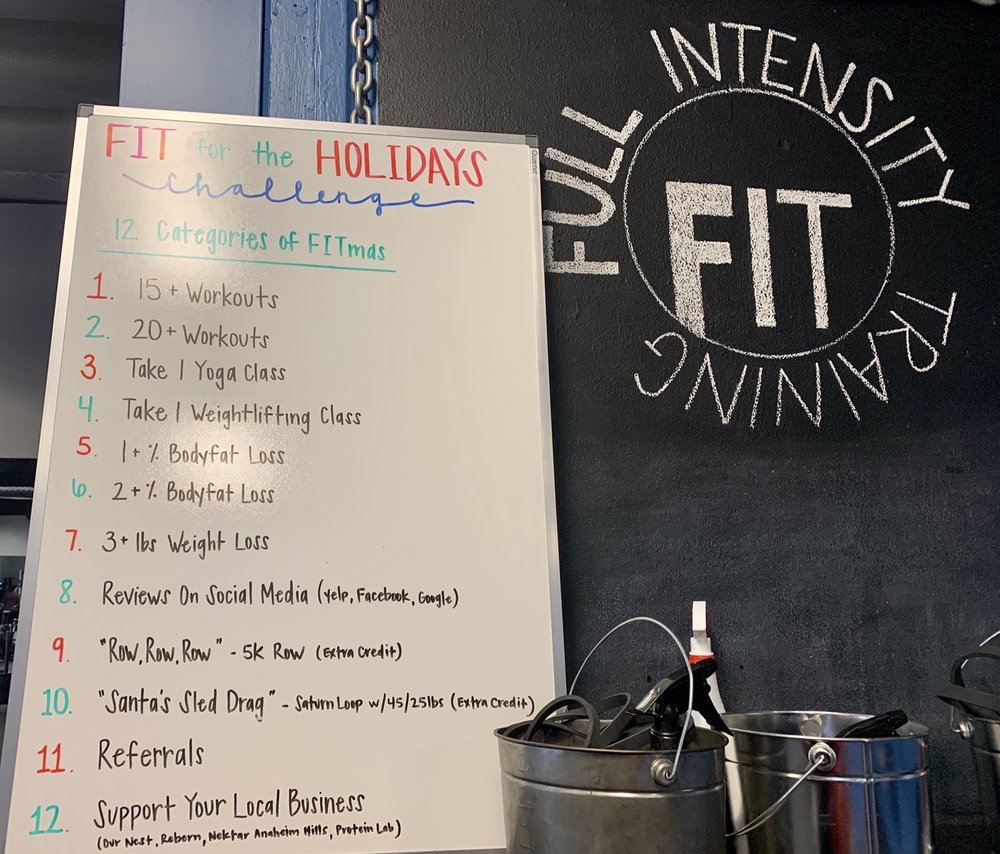 FIT for the HOLIDAYS
challenge
12 Categories of FITmas
1. 15+ Workouts
2. 20+ Workouts
3. Take 1 Yoga Class
4. Take 1 Weightlifting Class
5. 1+% Bodyfat Loss
6. 2+% Bodyfat Loss
7. 3+ lbs Weight Loss
8. Reviews On Social Media (Yelp, Facebook, Google)
9. "Row, Row, Row" - 5K Row (Extra Credit)
10. "Santa's Sled Drag" - Saturn Loop w/45/25lbs (Extra Credit)
11. Referrals
12. Support Your Local Business
(Our Nest, Reborn, Nektar Anaheim Hills, Protein Lab)
Quartet
FULL INTENSITY TRAINING
FIT